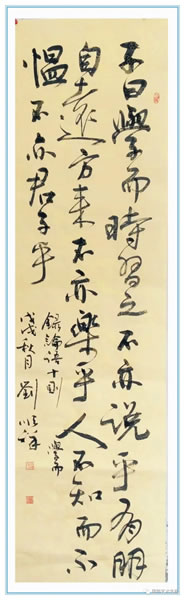 子曰學而時習之不亦說乎有朋
自遠方来不亦樂乎人不知而不
愠不亦君子乎
錄論語十則 學而
戊戌秋月 劉